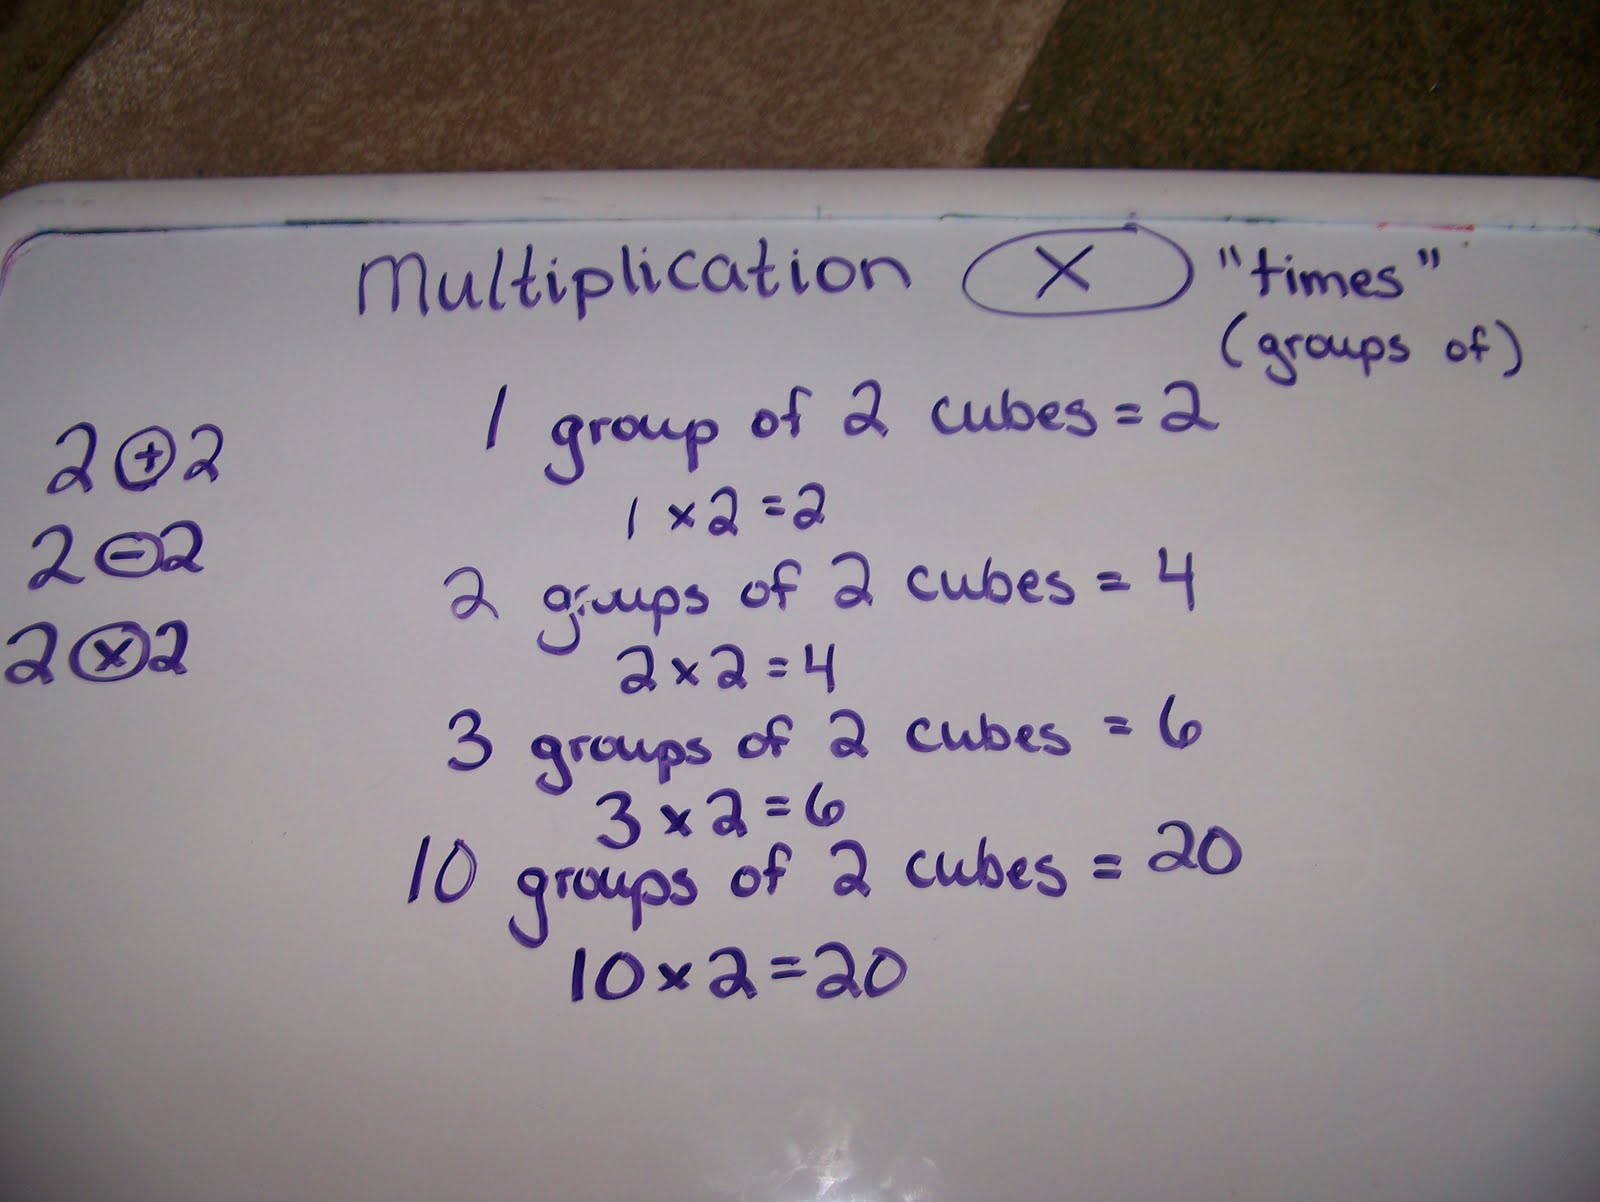 Multiplication X "times"
(groups of)
1 group of 2 cubes = 2
1 × 2 = 2
2 groups of 2 cubes = 4
2 × 2 = 4
3 groups of 2 cubes = 6
3 × 2 = 6
10 groups of 2 cubes = 20
10 × 2 = 20
2 + 2
2 - 2
2 × 2